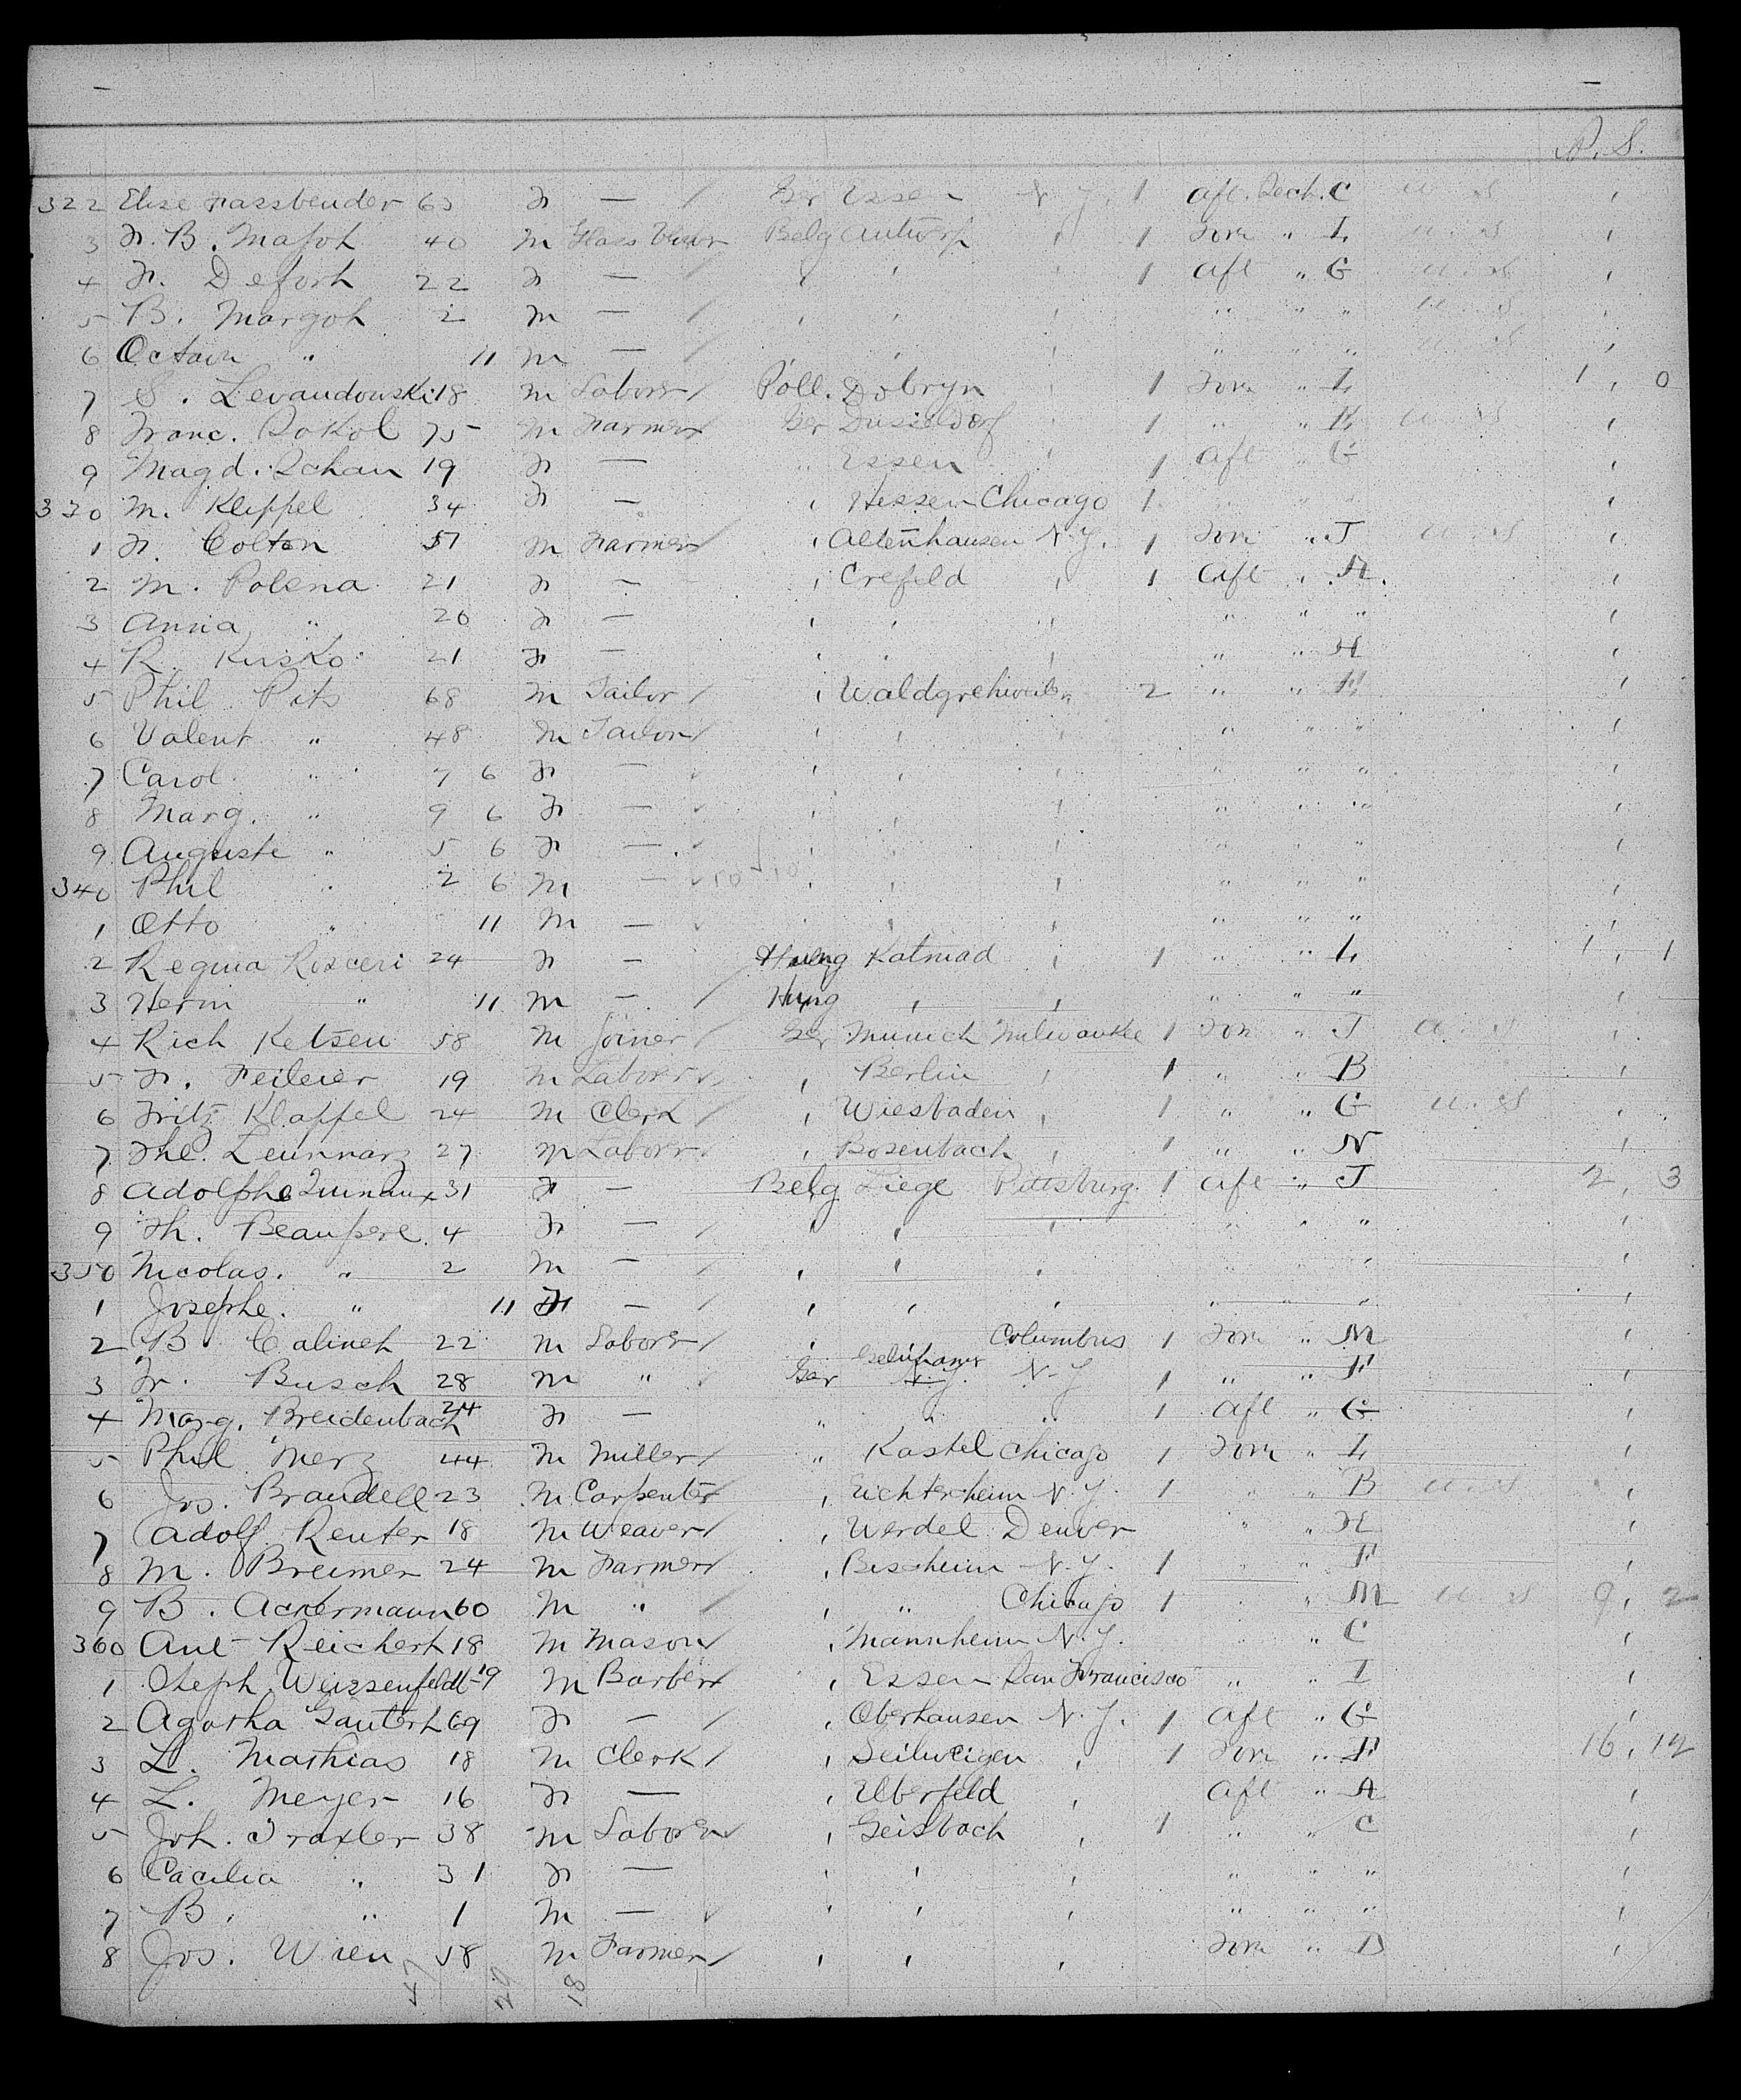 P. S.
322 Elise Fassbender 63 F — / Ger Essen N.Y. 1 Aft. Deck. C U.S. '
3 F. B. Majoh 40 M Glass Blower Belg Antwerp ' 1 Forw " L U.S. '
4 F. Deforh 22 F — / ' ' ' 1 Aft " G U.S. '
5 B. Margoh 2 M — / ' ' ' " " " U.S. '
6 Octavn " 11 M — / ' ' ' " " " U.S. '
7 S. Levandouski 18 M Laborer / Poll. Dobryn ' 1 Forw " L 1, 0
8 Franc. Rokol 75 M Farmer / Ger Dusseldorf ' 1 " " K U.S. '
9 Magd. Schau 19 F — " Essen ' 1 Aft " G '
330 M. Kleppel 34 F — ' Hessen Chicago 1 " " " '
1 F. Colton 51 M Farmer / ' Altenhausen N.Y. 1 Forw " J U.S. '
2 M. Polena 21 F — ' Crefeld ' 1 Aft " A. '
3 Anna " 20 F — ' ' ' " " " '
4 R. Kusko 21 F — ' ' ' " " H '
5 Phil Pits 68 M Tailor / ' Waldgrehweiler 2 " " E '
6 Valent " 48 M Tailor / ' ' ' " " " '
7 Carol " 7 6 F — ✓ ' ' ' " " " '
8 Marg. " 9 6 F — ✓ ' ' ' " " " '
9 Auguste " 5 6 F — ✓ ' ' ' " " " '
340 Phil " 2 6 M — ✓ ' ' ' " " " '
1 Otto " 11 M — ✓ ' ' ' " " " '
2 Regina Risceri 24 F — / Hung Katmad ' 1 " " L 1, 1
3 Herm " 11 M — / Hung ' ' " " " '
4 Rich Ketsen 58 M Joiner / Ger Munich Milwaukee 1 Forw " J U.S. '
5 F. Feileier 19 M Laborer ✓ ' Berlin ' 1 " " B '
6 Fritz Klappel 24 M Clerk / ' Wiesbaden ' 1 " " G U.S. '
7 The. Leunnarz 27 M Laborer ' Bosenbach ' 1 " " N '
8 Adolphe Quinaux 31 F — Belg Liege Pittsburg. 1 Aft " J 2, 3
9 Th. Beaupere. 4 F — / ' ' ' " " " '
350 Nicolas. " 2 M — / ' ' ' " " " '
1 Josephe. " 11 F — / ' ' ' " " " '
2 B. Calineh 22 M Laborer / ' ' Columbus 1 Forw " M '
3 Fr. Busch 28 M " / Ger N.Y. 1 " " F '
4 Marg. Breidenbach 24 F — " " " 1 Aft " G '
5 Phil Merz 44 M Miller / " Kastel Chicago 1 Forw " L '
6 Jos. Brandell 23 M Carpenter / ' Eichtersheim N.Y. 1 " " B U.S. '
7 Adolf Reuter 18 M Weaver / ' Werdel Denver " " H '
8 M. Breimer 24 M Farmer / ' Bischeim N.Y. 1 " " F '
9 B. Ackermann 60 M " / ' " Chicago 1 " " M U.S. 9, 2
360 Ant Reichert 18 M Mason / ' Mannheim N.Y. " C '
1 Steph. Weissenfeldt 19 M Barber / ' Essen San Francisco " " I '
2 Agatha Gauterh 69 F — / ' Oberhausen N.Y. 1 Aft " G '
3 L. Mathias 18 M Clerk / ' Seilweigen ' 1 Forw " F 16, 12
4 L. Meyer 16 F — ' Elberfeld ' Aft " A '
5 Joh. Traxler 38 M Laborer ✓ ' Geisbach ' 1 " " C '
6 Cacilia " 31 F — ' ' ' " " " '
7 B. " 1 M — ✓ ' ' ' " " " '
8 Jos. Wien 58 M Farmer / ' ' ' Forw " D '
47 29 18